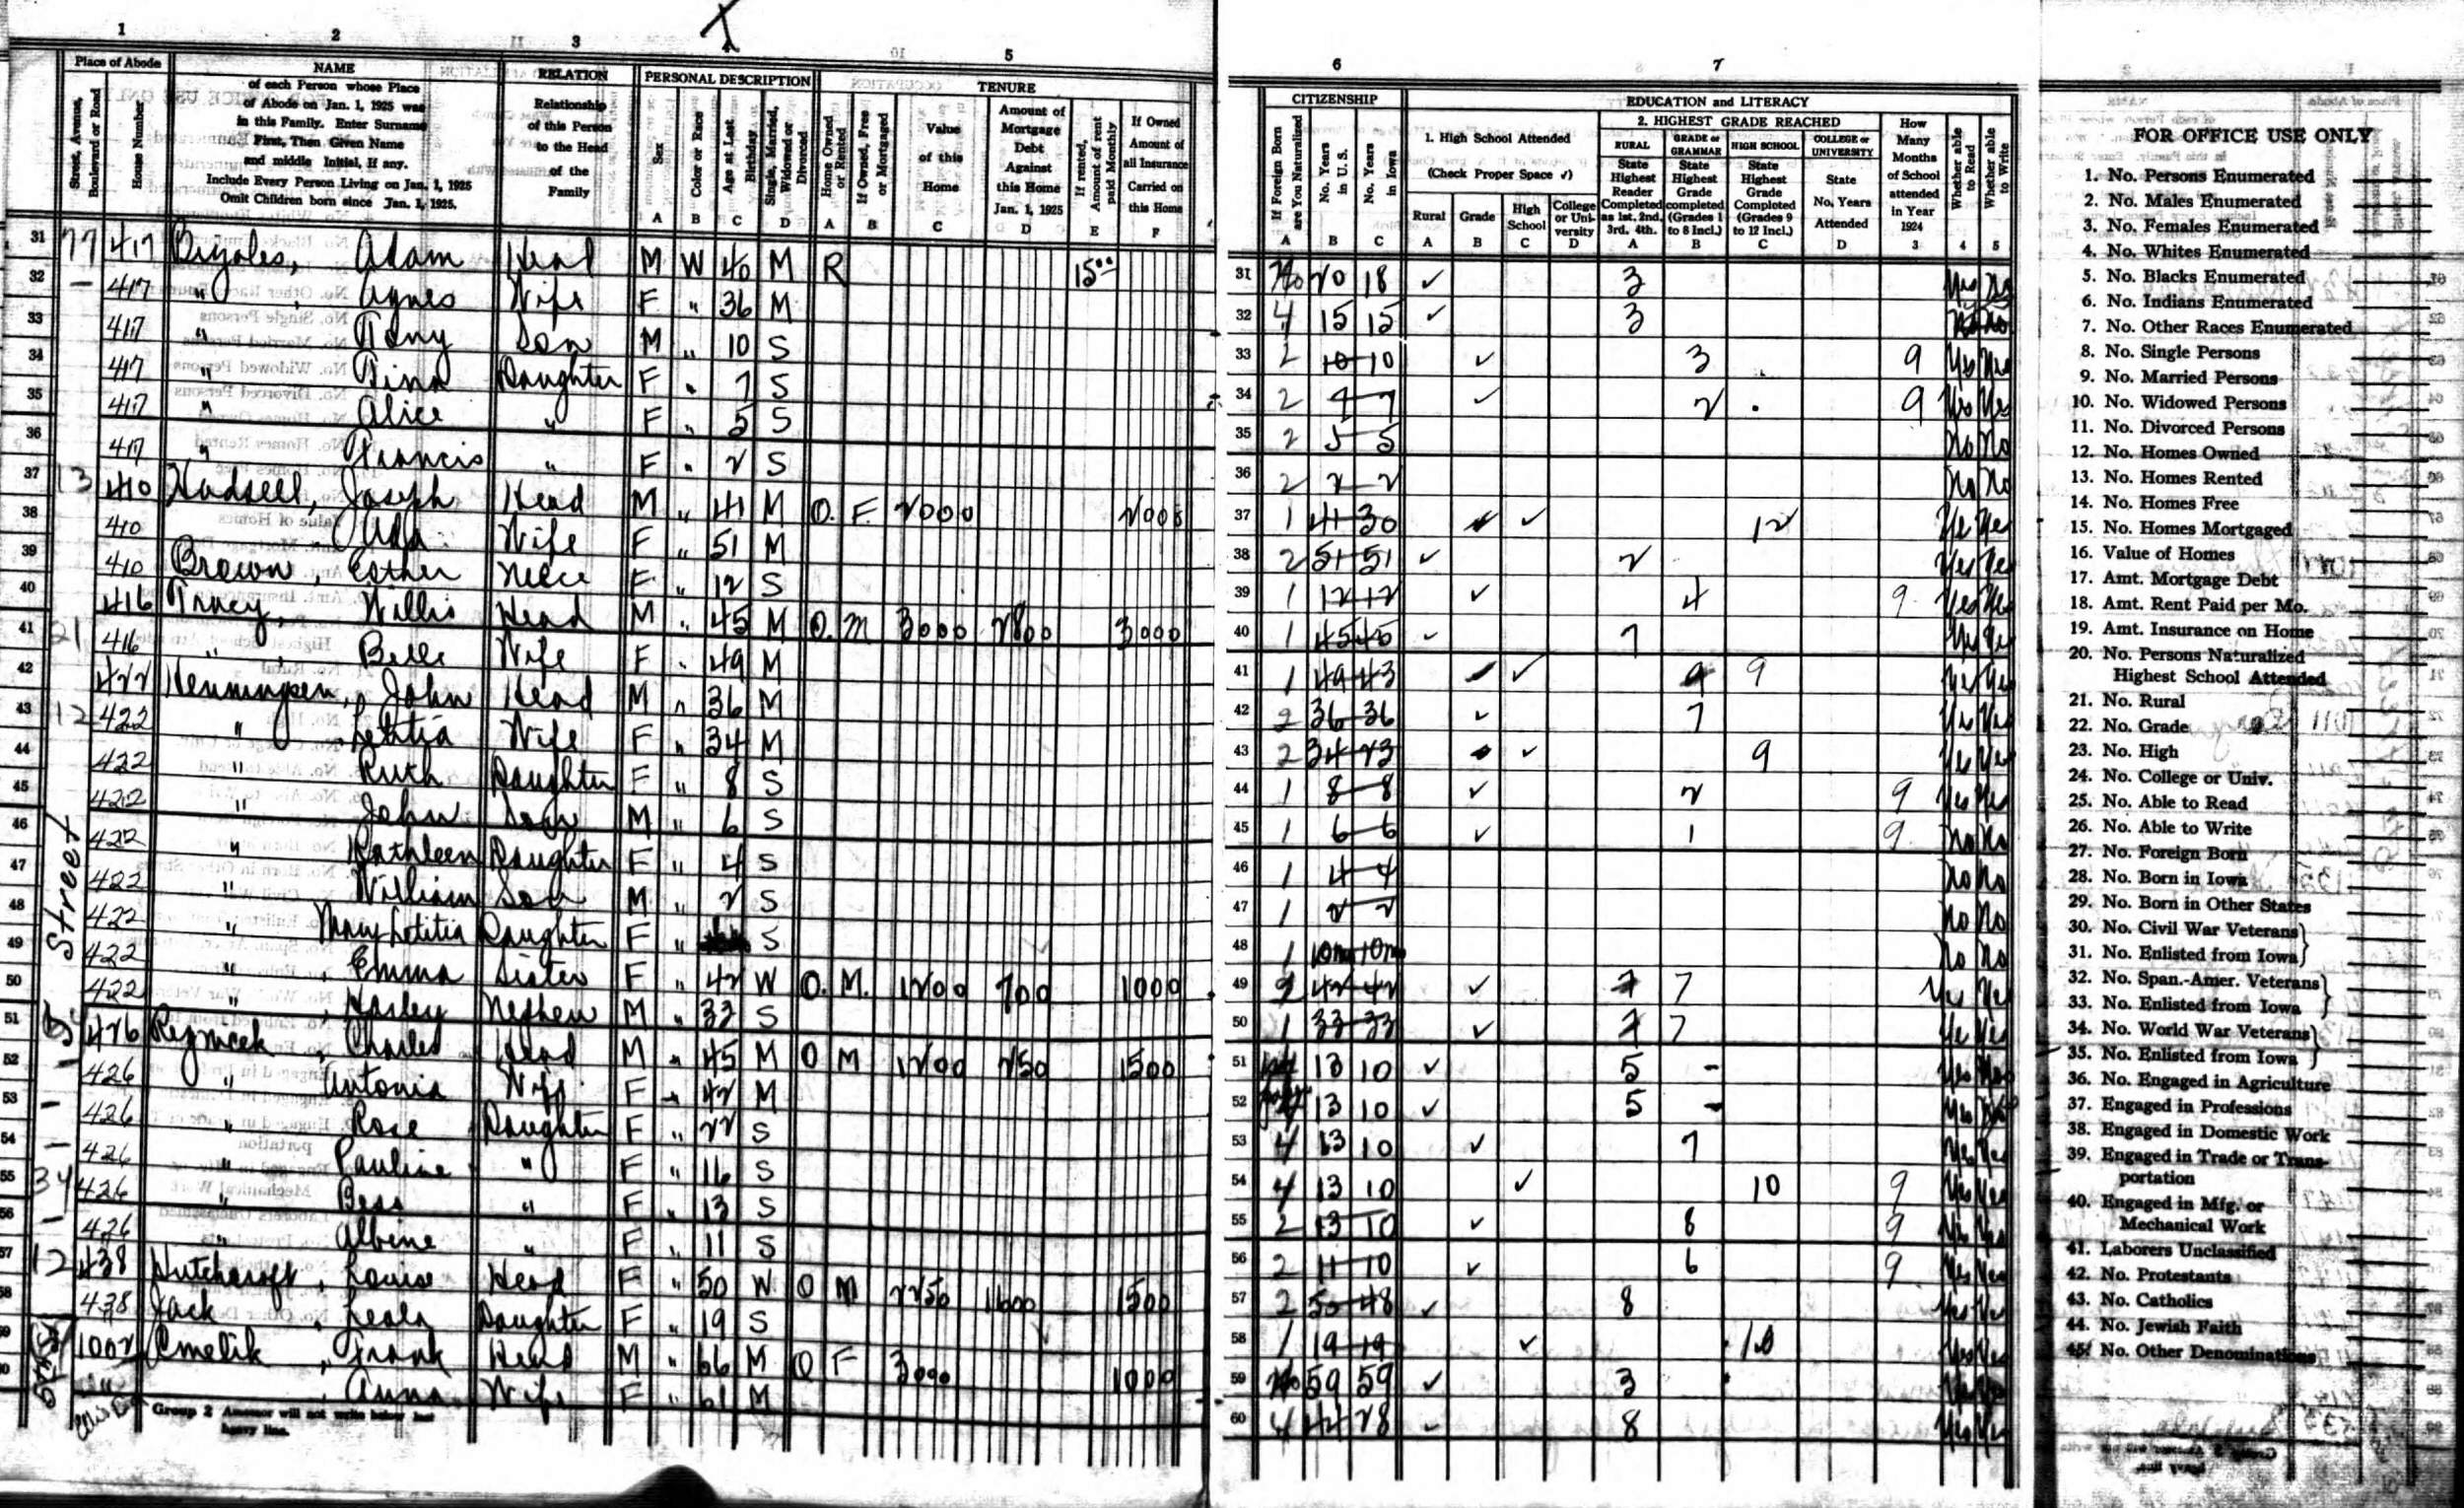 1 2 3 4 5
Place of Abode
Street, Avenue, Boulevard or Road
House Number
NAME
of each Person whose Place
of Abode on Jan. 1, 1925 was
in this Family. Enter Surname
First, Then Given Name
and middle Initial, if any.
Include Every Person Living on Jan. 1, 1925
Omit Children born since Jan. 1, 1925.
RELATION
Relationship
of this Person
to the Head
of the
Family
PERSONAL DESCRIPTION
Sex
Color or Race
Age at Last Birthday
Single, Married, Widowed or Divorced
A B C D
TENURE
Home Owned or Rented
If Owned, Free or Mortgaged
Value of this Home
Amount of Mortgage Debt Against this Home Jan. 1, 1925
If rented, Amount of rent paid Monthly
If Owned Amount of all Insurance Carried on this Home
A B C D E F
31 417 Adam Head M W 40 M R 15 00
32 417 " Agnes Wife F " 36 M
33 417 " Tony Son M " 10 S
34 417 " Tina Daughter F " 7 S
35 417 " Alice " F " 5 S
36 417 " Francis " F " 2 S
37 410 Hadsell, Joseph Head M " 41 M O. F. 2000 2000
38 410 " Ada Wife F " 51 M
39 410 Brown, Esther Neice F " 12 S
40 416 Tracy, Willis Head M " 45 M O. M 3000 2800 3000
41 416 " Belle Wife F " 49 M
42 422 Henningsen, John Head M " 36 M
43 422 " Letitia Wife F " 34 M
44 422 " Ruth Daughter F " 8 S
45 422 " John Son M " 6 S
46 422 " Kathleen Daughter F " 4 S
47 422 " William Son M " 2 S
48 422 " Mary Letitia Daughter F " S
49 422 " Emma Sister F " 42 W O. M. 1200 700 1000
50 422 " Harley Nephew M " 33 S
51 426 Reznicek, Charles Head M " 45 M O M 1200 250 1500
52 426 " Antonia Wife F " 42 M
53 426 " Rose Daughter F " 22 S
54 426 " Pauline " F " 16 S
55 426 " Bess " F " 13 S
56 426 " Albine " F " 11 S
57 438 Hutchcroft, Louise Head F " 50 W O M 2250 1600 1500
58 438 Jack, Leala Daughter F " 19 S
59 1002 Cmelik, Frank Head M " 66 M O F 3000 1000
60 " Anna Wife F " 61 M
Street
Group 2 Assessor will not write below last
heavy line.
6 7
CITIZENSHIP
If Foreign Born are You Naturalized
No. Years in U. S.
No. Years in Iowa
A B C
EDUCATION and LITERACY
1. High School Attended
(Check Proper Space ✓)
Rural Grade High School College or University
A B C D
2. HIGHEST GRADE REACHED
RURAL
State Highest Reader Completed as 1st. 2nd. 3rd. 4th.
A
GRADE or GRAMMAR
State Highest Grade completed (Grades 1 to 8 Incl.)
B
HIGH SCHOOL
State Highest Grade Completed (Grades 9 to 12 Incl.)
C
COLLEGE or UNIVERSITY
State No. Years Attended
D
How Many Months of School attended in Year 1924
3
Whether able to Read
4
Whether able to Write
5
31 No 20 18 ✓ 3 Yes No
32 4 15 15 ✓ 3 No No
33 2 10 10 ✓ 3 9 Yes Yes
34 2 7 7 ✓ 2 9 Yes Yes
35 2 5 5 No No
36 2 2 2 No No
37 1 41 30 ✓ 12 Yes Yes
38 2 51 51 ✓ 2 Yes Yes
39 1 12 12 ✓ 4 9 Yes Yes
40 1 45 45 ✓ 7 Yes Yes
41 1 49 43 ✓ 9 Yes Yes
42 2 36 36 ✓ 7 Yes Yes
43 2 34 23 ✓ 9 Yes Yes
44 1 8 8 ✓ 2 9 Yes Yes
45 1 6 6 ✓ 1 9 No No
46 1 4 4 No No
47 1 2 2 No No
48 1 10m 10m No No
49 2 42 42 ✓ 7 Yes Yes
50 1 33 33 ✓ 7 Yes Yes
51 13 10 ✓ 5 - Yes Yes
52 13 10 ✓ 5 - Yes Yes
53 4 13 10 ✓ 7 Yes Yes
54 4 13 10 ✓ 10 9 Yes Yes
55 2 13 10 ✓ 8 9 Yes Yes
56 2 11 10 ✓ 6 9 Yes Yes
57 2 50 48 ✓ 8 Yes Yes
58 1 19 19 ✓ 10 Yes Yes
59 No 59 59 ✓ 3 Yes Yes
60 4 44 28 ✓ 8 Yes Yes
FOR OFFICE USE ONLY
1. No. Persons Enumerated
2. No. Males Enumerated
3. No. Females Enumerated
4. No. Whites Enumerated
5. No. Blacks Enumerated
6. No. Indians Enumerated
7. No. Other Races Enumerated
8. No. Single Persons
9. No. Married Persons
10. No. Widowed Persons
11. No. Divorced Persons
12. No. Homes Owned
13. No. Homes Rented
14. No. Homes Free
15. No. Homes Mortgaged
16. Value of Homes
17. Amt. Mortgage Debt
18. Amt. Rent Paid per Mo.
19. Amt. Insurance on Home
20. No. Persons Naturalized
Highest School Attended
21. No. Rural
22. No. Grade
23. No. High
24. No. College or Univ.
25. No. Able to Read
26. No. Able to Write
27. No. Foreign Born
28. No. Born in Iowa
29. No. Born in Other States
30. No. Civil War Veterans
31. No. Enlisted from Iowa
32. No. Span.-Amer. Veterans
33. No. Enlisted from Iowa
34. No. World War Veterans
35. No. Enlisted from Iowa
36. No. Engaged in Agriculture
37. Engaged in Professions
38. Engaged in Domestic Work
39. Engaged in Trade or Trans-
portation
40. Engaged in Mfg. or
Mechanical Work
41. Laborers Unclassified
42. No. Protestants
43. No. Catholics
44. No. Jewish Faith
45. No. Other Denominations